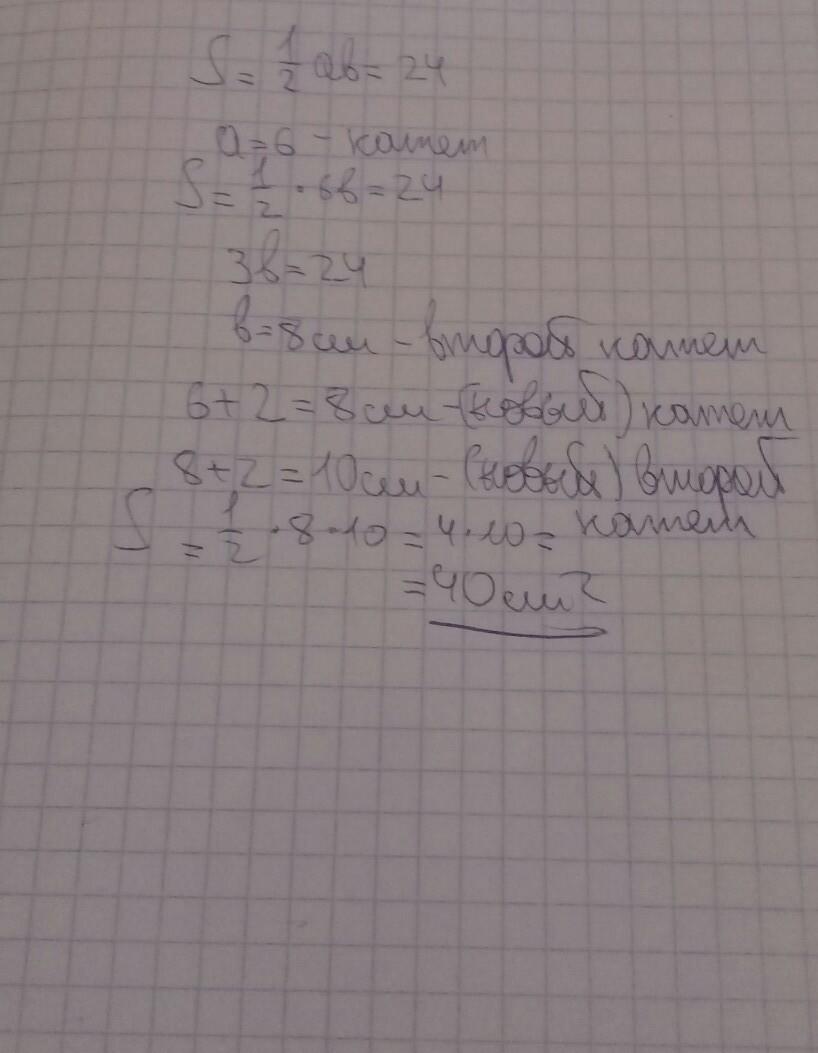 S = 1/2 ab = 24
a = 6 - катет
S = 1/2 · 6b = 24
3b = 24
b = 8 см - второй катет
6 + 2 = 8 см - (новый) катет
8 + 2 = 10 см - (новый) второй
катет
S = 1/2 · 8 · 10 = 4 · 10 =
= 40 см²